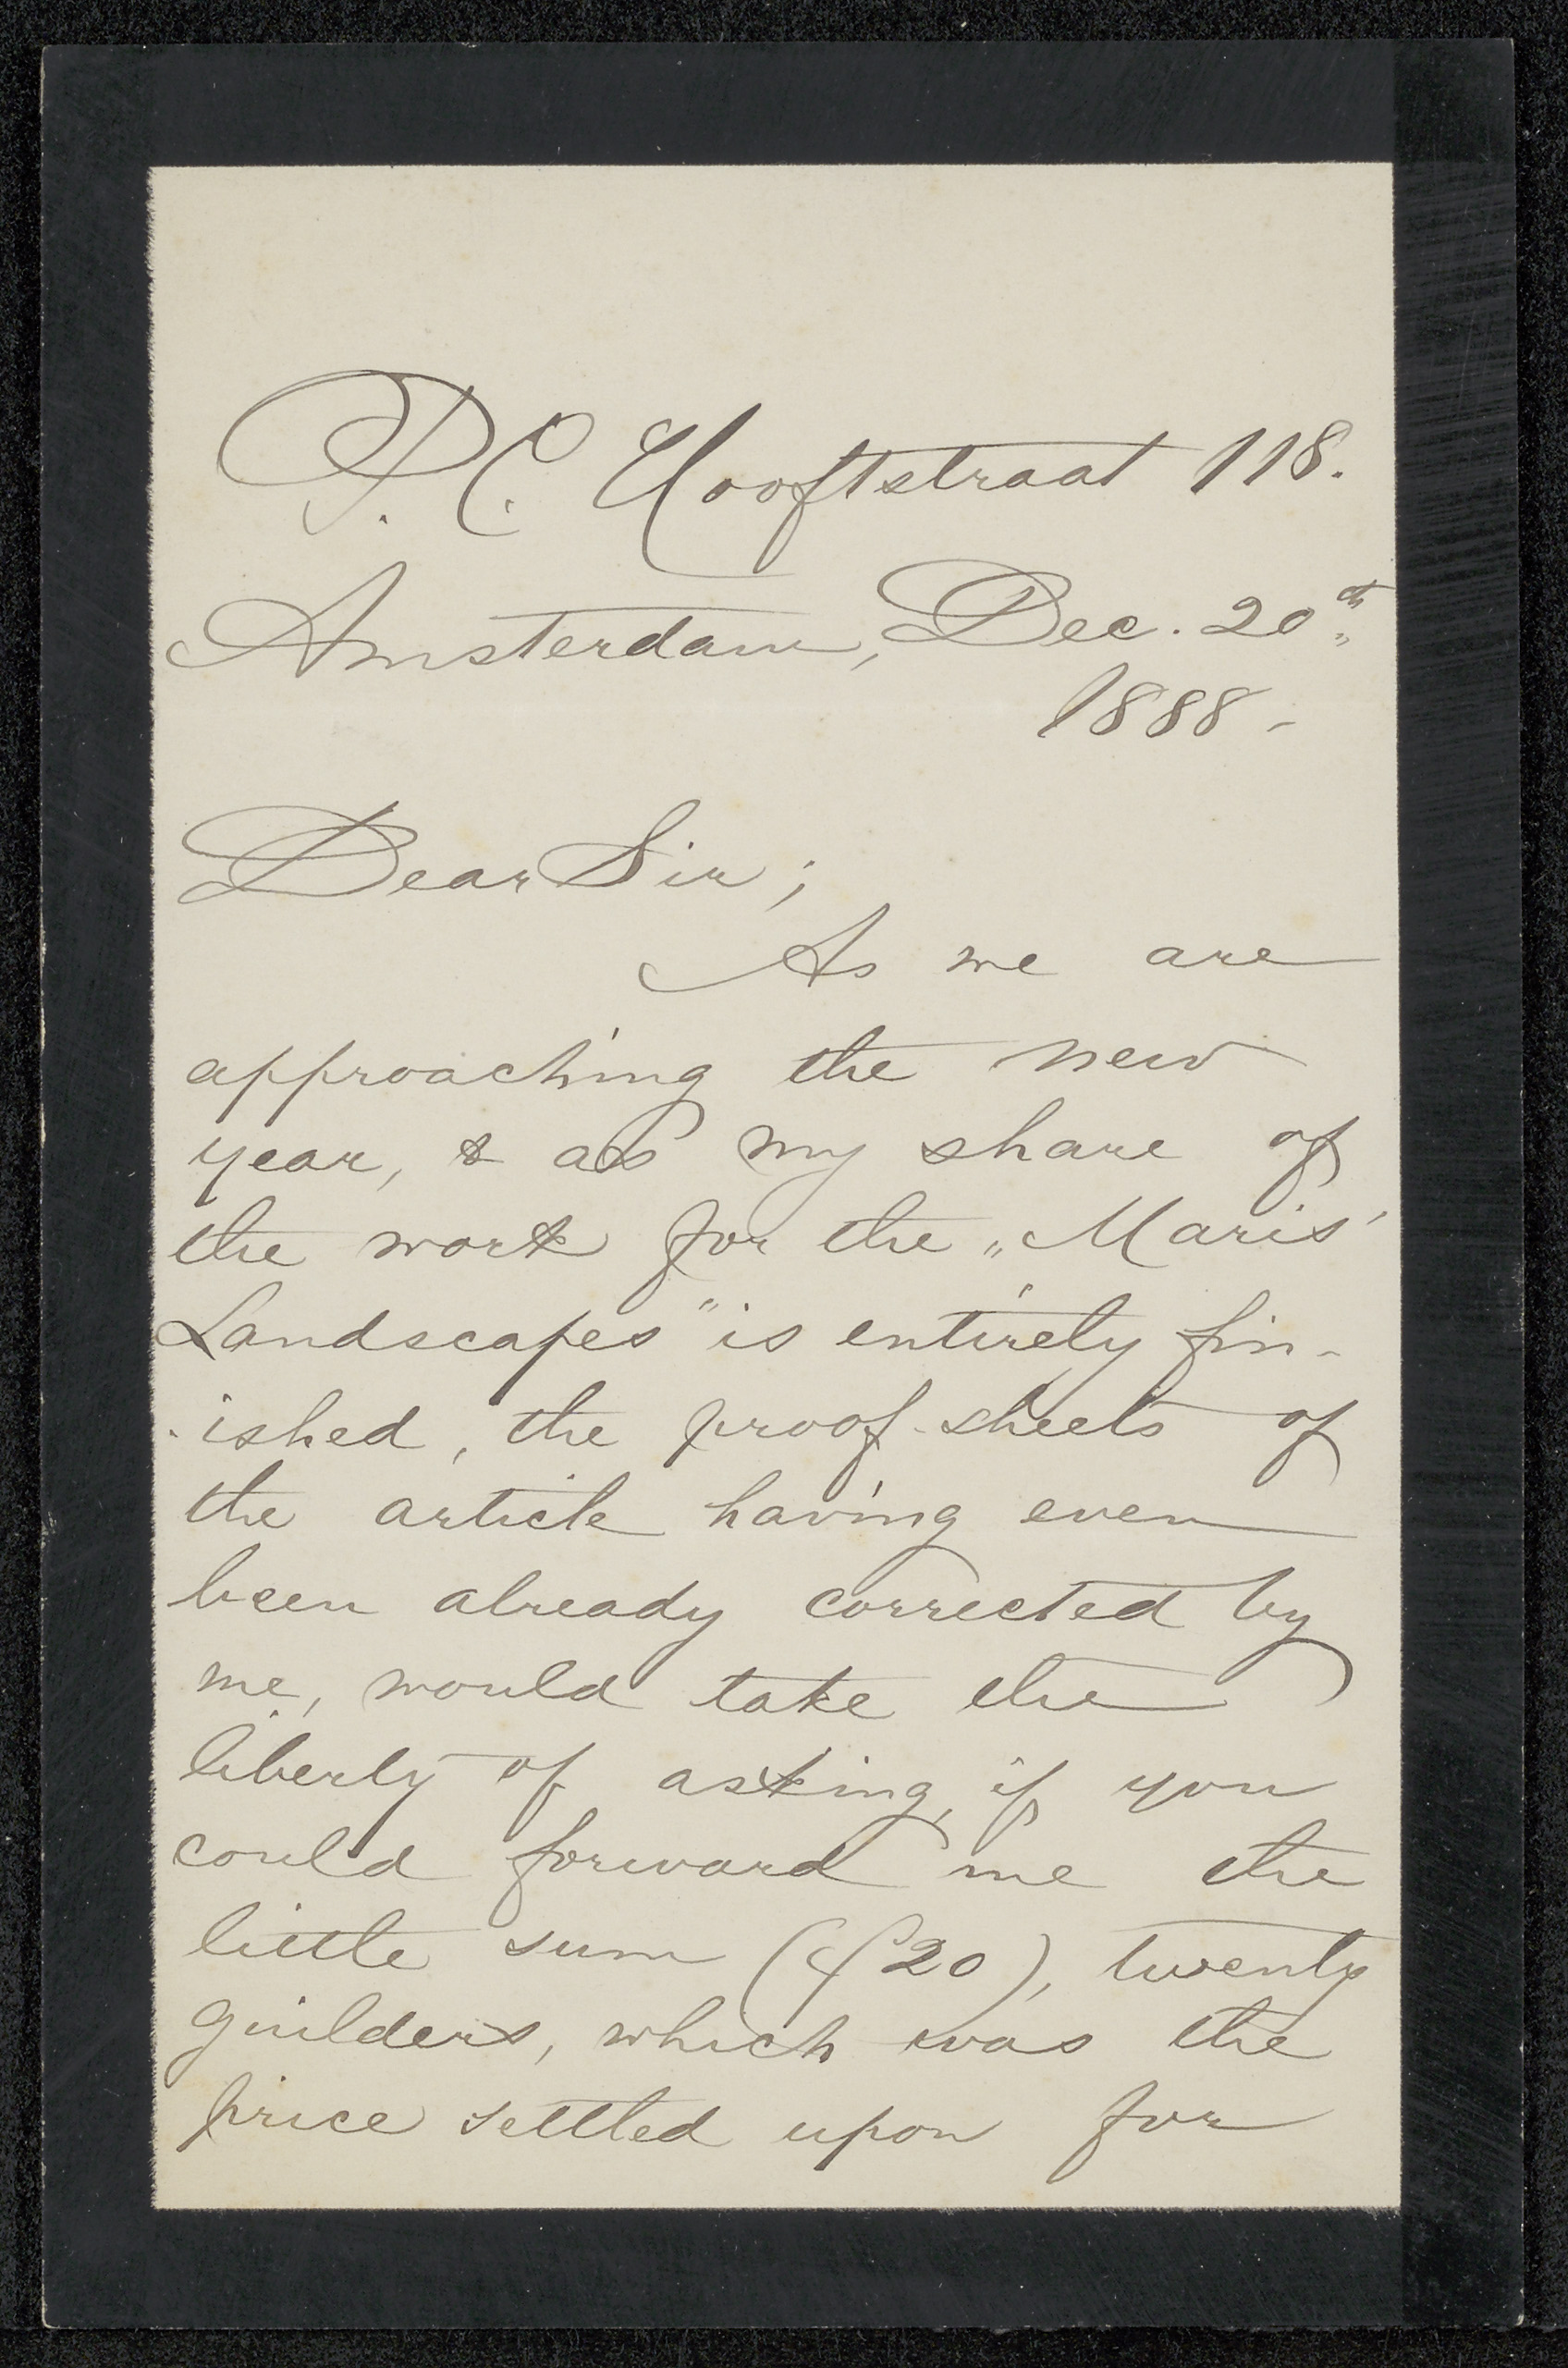 P. C. Hooftstraat 118.
Amsterdam, Dec. 20th
1888 -
Dear Sir;
As we are
approaching the new
year, & as my share of
the work for the „Maris'
Landscapes" is entirely fin-
-ished, the proof-sheets of
the article having even
been already corrected by
me, would take the
liberty of asking, if you
could forward me the
little sum (ƒ20), twenty
guilders, which was the
price settled upon for